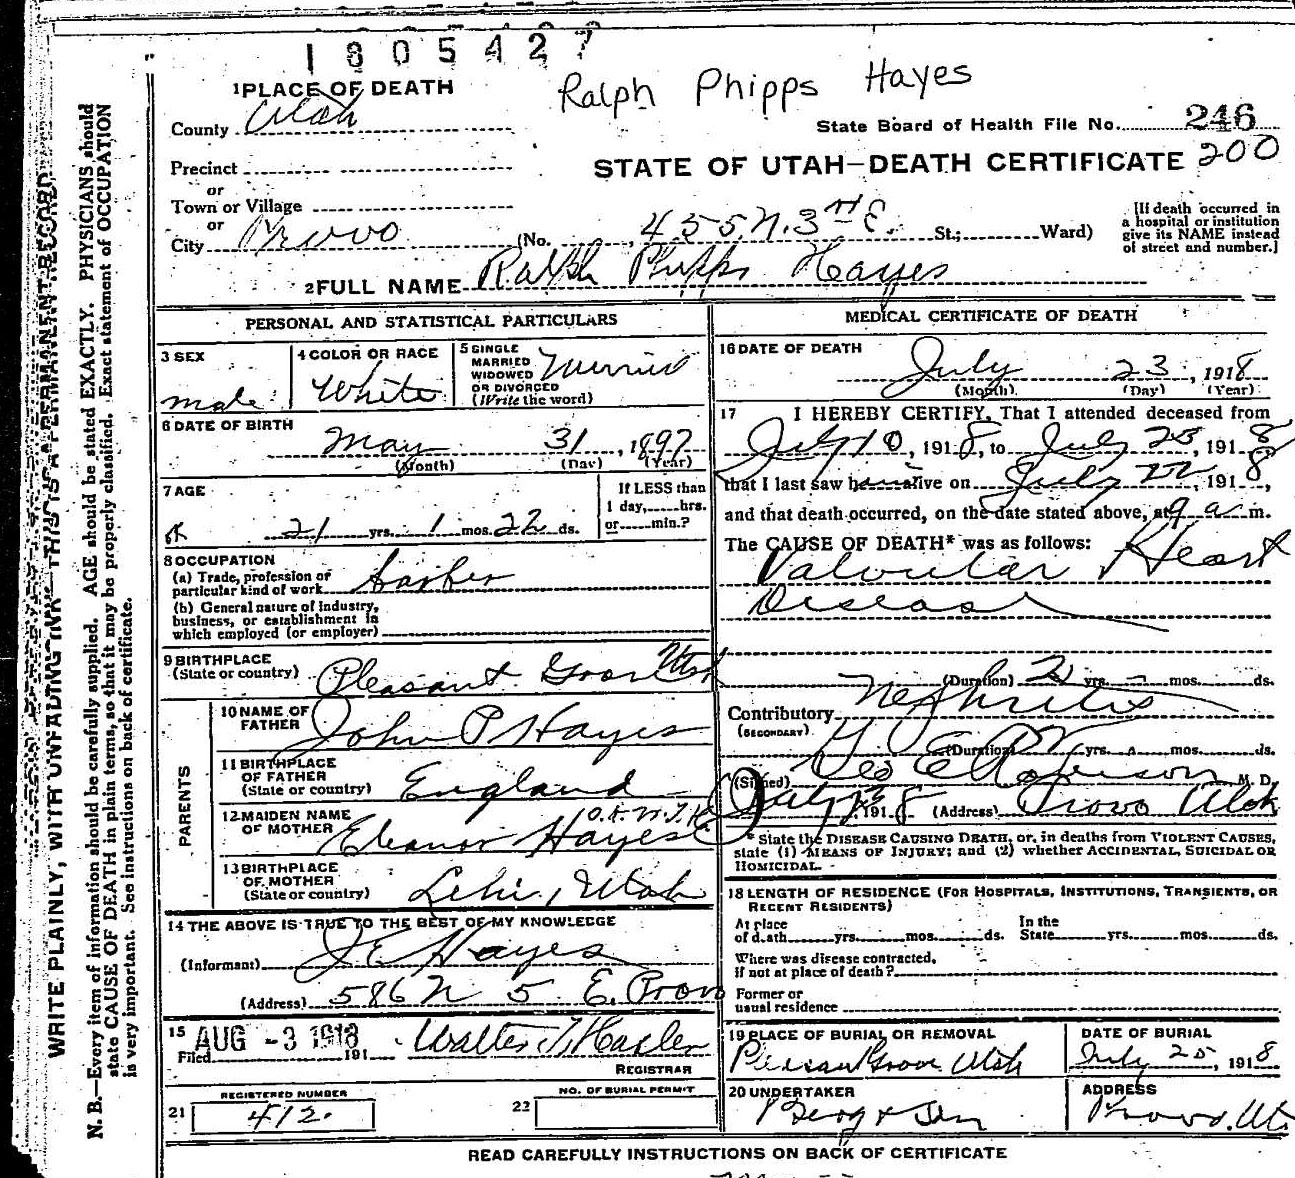 1805427
Ralph Phipps Hayes
1 PLACE OF DEATH
County Utah
State Board of Health File No. 246
Precinct
STATE OF UTAH—DEATH CERTIFICATE 200
or
Town or Village
or
City Provo (No. 455 N. 3rd E. St.; Ward)
[If death occurred in
a hospital or institution
give its NAME instead
of street and number.]
2 FULL NAME Ralph Phipps Hayes
PERSONAL AND STATISTICAL PARTICULARS
3 SEX
male
4 COLOR OR RACE
White
5 SINGLE
MARRIED
WIDOWED
OR DIVORCED
(Write the word)
Married
6 DATE OF BIRTH
May 31, 1897
(Month) (Day) (Year)
7 AGE
21 yrs. 1 mos. 22 ds.
If LESS than
1 day, hrs.
or min.?
8 OCCUPATION
(a) Trade, profession or
particular kind of work barber
(b) General nature of industry,
business, or establishment in
which employed (or employer)
9 BIRTHPLACE
(State or country) Pleasant Grove Utah
PARENTS
10 NAME OF
FATHER John P Hayes
11 BIRTHPLACE
OF FATHER
(State or country) England
12 MAIDEN NAME
OF MOTHER Eleanor Hayes
13 BIRTHPLACE
OF MOTHER
(State or country) Lehi, Utah
14 THE ABOVE IS TRUE TO THE BEST OF MY KNOWLEDGE
(Informant) J E Hayes
(Address) 586 N 5 E. Provo
15 AUG -3 1918
Filed 191 Walter T. Hasler
REGISTRAR
REGISTERED NUMBER
21 412.
NO. OF BURIAL PERMIT
22
MEDICAL CERTIFICATE OF DEATH
16 DATE OF DEATH
July 23, 1918
(Month) (Day) (Year)
17 I HEREBY CERTIFY, That I attended deceased from
July 10, 1918, to July 23, 1918
that I last saw h alive on July 22, 1918,
and that death occurred, on the date stated above, at 9 a m.
The CAUSE OF DEATH* was as follows:
Valvular Heart
Disease
(Duration) 2 yrs. mos. ds.
Contributory Nephritis
(SECONDARY)
(Duration) yrs. mos. ds.
(Signed) Geo E Robison M. D.
July 23, 1918 (Address) Provo Utah
* State the DISEASE CAUSING DEATH, or, in deaths from VIOLENT CAUSES,
state (1) MEANS OF INJURY; and (2) whether ACCIDENTAL, SUICIDAL OR
HOMICIDAL.
18 LENGTH OF RESIDENCE (FOR HOSPITALS, INSTITUTIONS, TRANSIENTS, OR
RECENT RESIDENTS)
At place
of death yrs. mos. ds.
In the
State yrs. mos. ds.
Where was disease contracted,
if not at place of death?
Former or
usual residence
19 PLACE OF BURIAL OR REMOVAL
Pleasant Grove Utah
DATE OF BURIAL
July 25, 1918
20 UNDERTAKER
Berg & Son
ADDRESS
Provo, Ut
READ CAREFULLY INSTRUCTIONS ON BACK OF CERTIFICATE
WRITE PLAINLY, WITH UNFADING INK—THIS IS A PERMANENT RECORD
N. B.—Every item of information should be carefully supplied. AGE should be stated EXACTLY. PHYSICIANS should
state CAUSE OF DEATH in plain terms, so that it may be properly classified. Exact statement of OCCUPATION
is very important. See instructions on back of certificate.